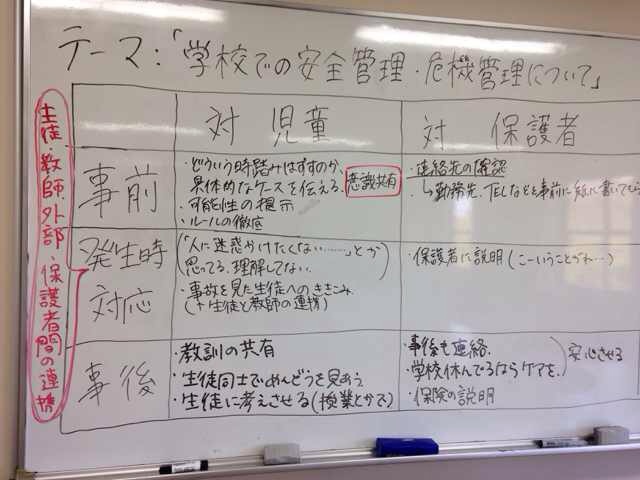 テーマ:「学校での安全管理・危機管理について」
生徒・教師・外部・保護者間の連携
対 児童
対 保護者
事前
・どういう時踏みはずすのか、
具体的なケースを伝える。
意識共有
・可能性の提示
・ルールの徹底
・連絡先の確認
↳勤務先、TELなどを事前に紙に書いてもらう
発生時
対応
(「人に迷惑かけたくない……」とか
思ってる。理解してない。)
・事故を見た生徒へのききこみ
(+生徒と教師の連携)
・保護者に説明(こーいうことがね…)
事後
・教訓の共有
・生徒同士でめんどうを見あう
・生徒に考えさせる(授業とかで)
・事後も連絡。
・学校休んでるならケアを。
安心させる
・保険の説明